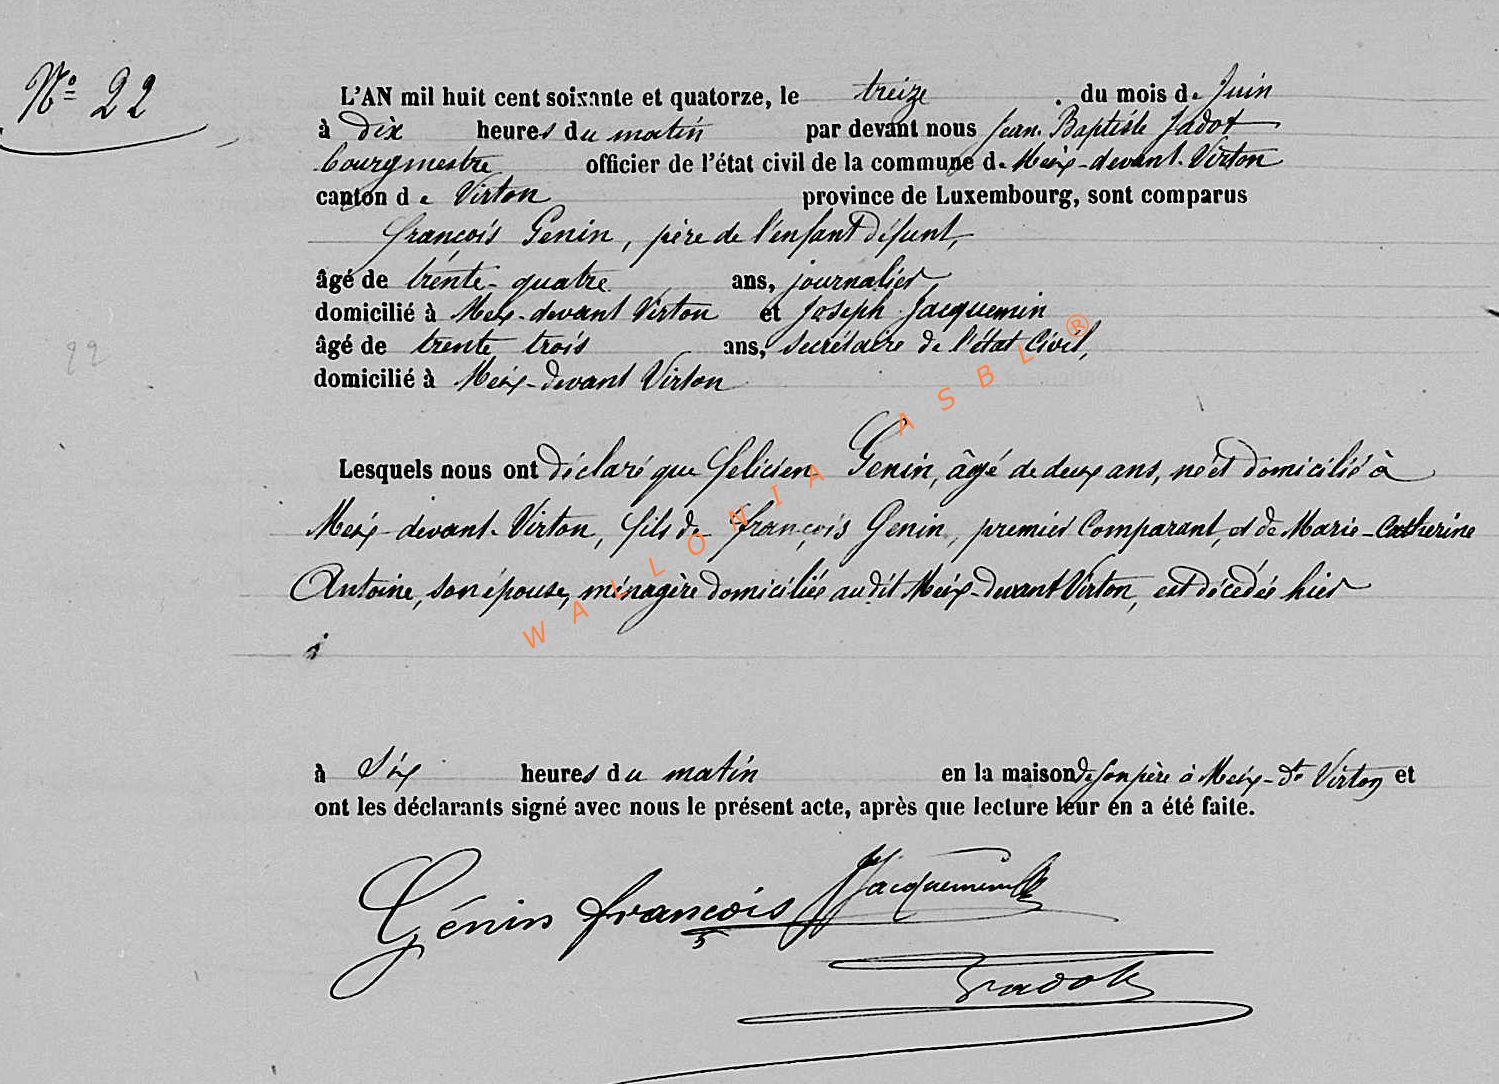 N° 22
L'AN mil huit cent soixante et quatorze, le treize du mois de Juin
à dix heures du matin par devant nous Jean-Baptiste Jadot
bourgmestre officier de l'état civil de la commune de Meix-devant-Virton
canton de Virton province de Luxembourg, sont comparus
François Genin, père de l'enfant défunt,
âgé de trente-quatre ans, journalier
domicilié à Meix-devant Virton et Joseph Jacquemin
âgé de trente trois ans, secrétaire de l'état Civil,
22
domicilié à Meix-devant Virton
Lesquels nous ont déclaré que Felicien Genin, âgé de deux ans, né et domicilié à
Meix-devant-Virton, fils de François Genin, premier Comparant, et de Marie-Catherine
Antoine, son épouse, ménagère domiciliée audit Meix-devant Virton, est décédée hier
à six heures du matin en la maison de son père à Meix-dt Virton et
ont les déclarants signé avec nous le présent acte, après que lecture leur en a été faite.
Génin françois Jacquemin
Jadot
WALLONIA ASBL ®